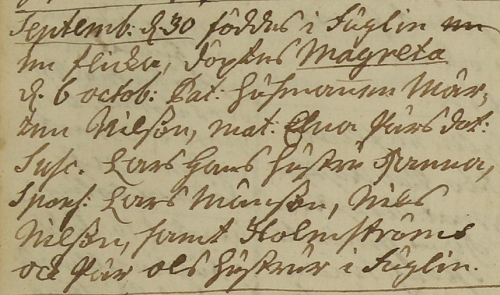 Septemb: d. 30 föddes i Fuglin en
en flicka, döptes Magreta
d. 6 octob: Pat: husmannen Mår-
ten Nilsson, mat: Elna Pårs dot:
Susc. Lars Hans hustru Hanna,
Spons: Lars Månsson, Nils
Nilsson, samt Holmströms
och Pår Ols hustrur i Fuglin.